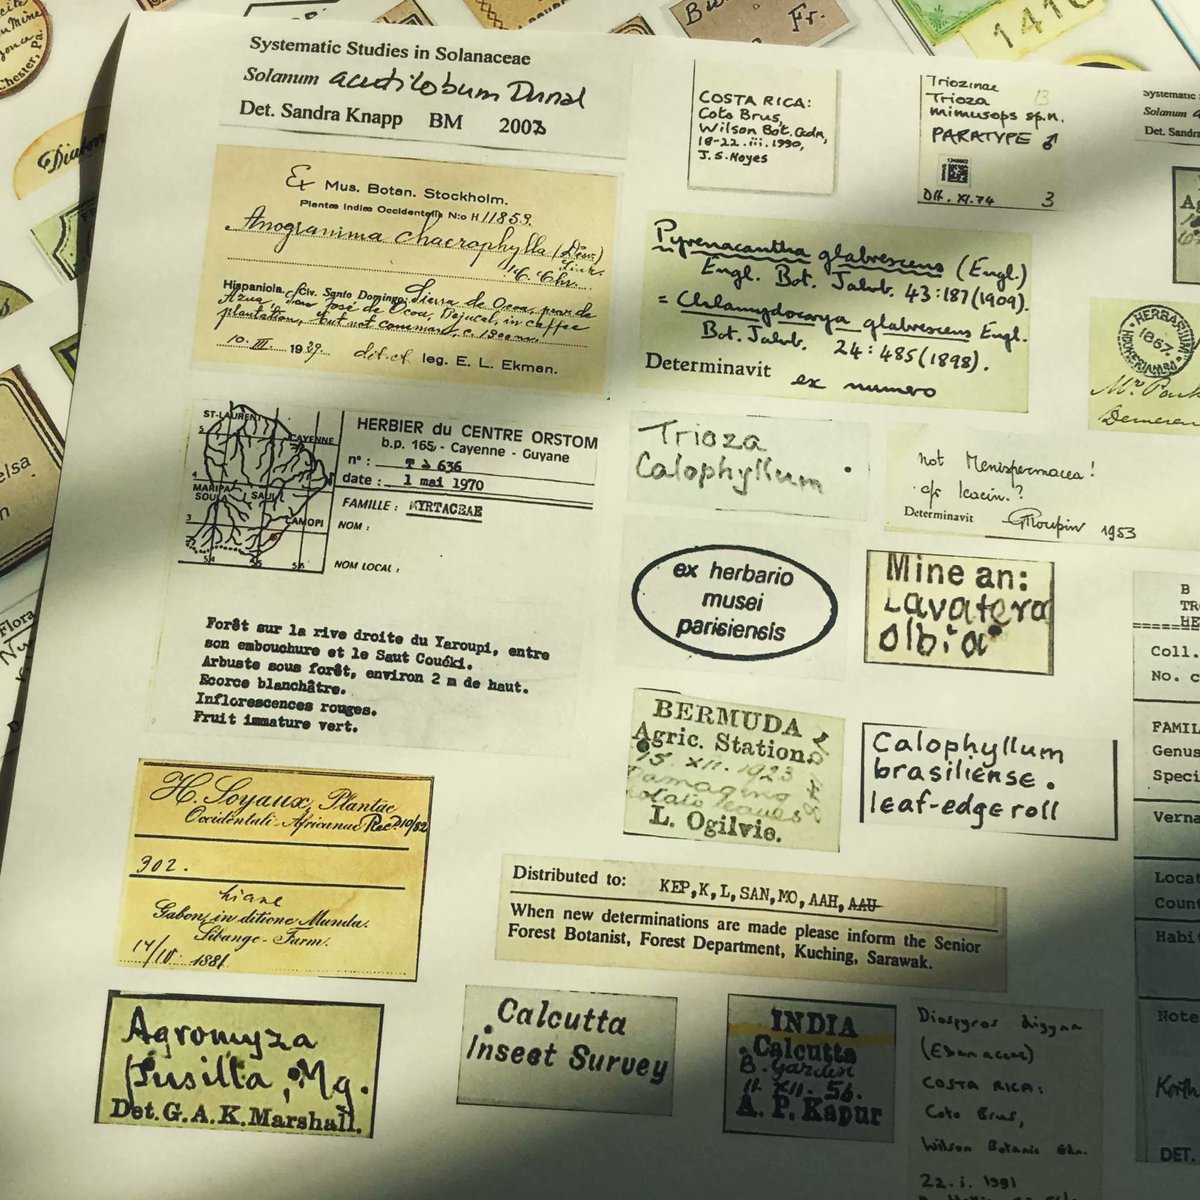 Chester, Pa.
Fr.
1410
Systematic Studies in Solanaceae
Solanum acutilobum Dunal
Det. Sandra Knapp BM 2003
COSTA RICA:
Coto Brus,
Wilson Bot. Gdn,
18-22.iii.1990,
J.S. Noyes
Triozinae
Trioza 13
mimusops sp.n.
PARATYPE ♂
DH. XI.74 3
Systematic
Solanum
Det. Sandra
Ex Mus. Botan. Stockholm.
Plantæ Indiæ Occidentalis N:o H 11859.
Anogramma chaerophylla (Desv)
Link
Hispaniola. Civ. Santo Domingo, Sierra de Ocoa, prov. de
Azua, San José de Ocoa, Bejucal, in coffee
plantation, but not common, c. 1300 m.
10. III. 1929 det. et leg. E. L. Ekman.
Pyrenacantha glabrescens (Engl.)
Engl. Bot. Jahrb. 43:187(1909).
= Chlamydocarya glabrescens Engl.
Bot. Jahrb. 24:485(1898).
Determinavit ex numero
HERBARIUM
1867.
HOOKERIANUM
ST-LAURENT
CAYENNE
MARIPA
SOULA
SAUL
CAMOPI
HERBIER du CENTRE ORSTOM
b.p. 165 - Cayenne - Guyane
n° : T à 636
date : 1 mai 1970
FAMILLE : MYRTACEAE
NOM :
NOM LOCAL :
Forêt sur la rive droite du Yaroupi, entre
son embouchure et le Saut Couéki.
Arbuste sous forêt, environ 2 m de haut.
Ecorce blanchâtre.
Inflorescences rouges.
Fruit immature vert.
Trioza
Calophyllum
not Menispermacea!
cfr Icacin.?
Determinavit GTroupin 1953
ex herbario
musei
parisiensis
Mine an:
Lavatera
olbia
BERMUDA
Agric. Station
15. XII. 1923
Damaging
potato leaves
L. Ogilvie.
Calophyllum
brasiliense.
leaf-edge roll
B
TRO
HE
Coll.
No. c
FAMIL
Genus
Speci
Verna
Locat
Count
Habit
Note
DET.
H. Soyaux, Plantae
Occidentali-Africanae Recd 10/82
302.
Liane
Gabon, in ditione Munda.
Sibange-Farm.
14/IX 1881
Distributed to: KEP,K,L,SAN,MO,AAH,AAU
When new determinations are made please inform the Senior
Forest Botanist, Forest Department, Kuching, Sarawak.
Agromyza
pusilla, Mg.
Det. G.A.K. Marshall.
Calcutta
Insect Survey
INDIA
Calcutta
B. Garden
11. XII. 56.
A. P. Kapur
Diospyros digyna
(Ebenaceae)
COSTA RICA:
Coto Brus,
Wilson Botanic Gdn.
22.i.1991